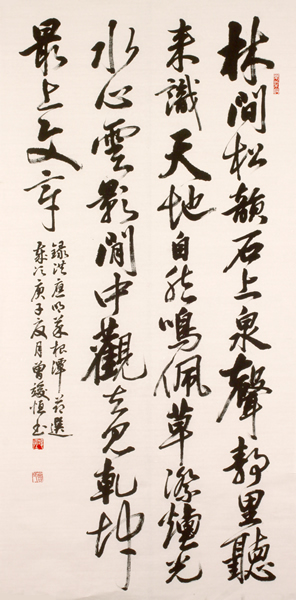 林間松韻石上泉聲靜里聽
来識天地自然鳴佩草際煙光
水心雲影閒中觀去見乾坤
最上文章
録洪應明菜根譚節選
歲次庚子夏月曾恒書